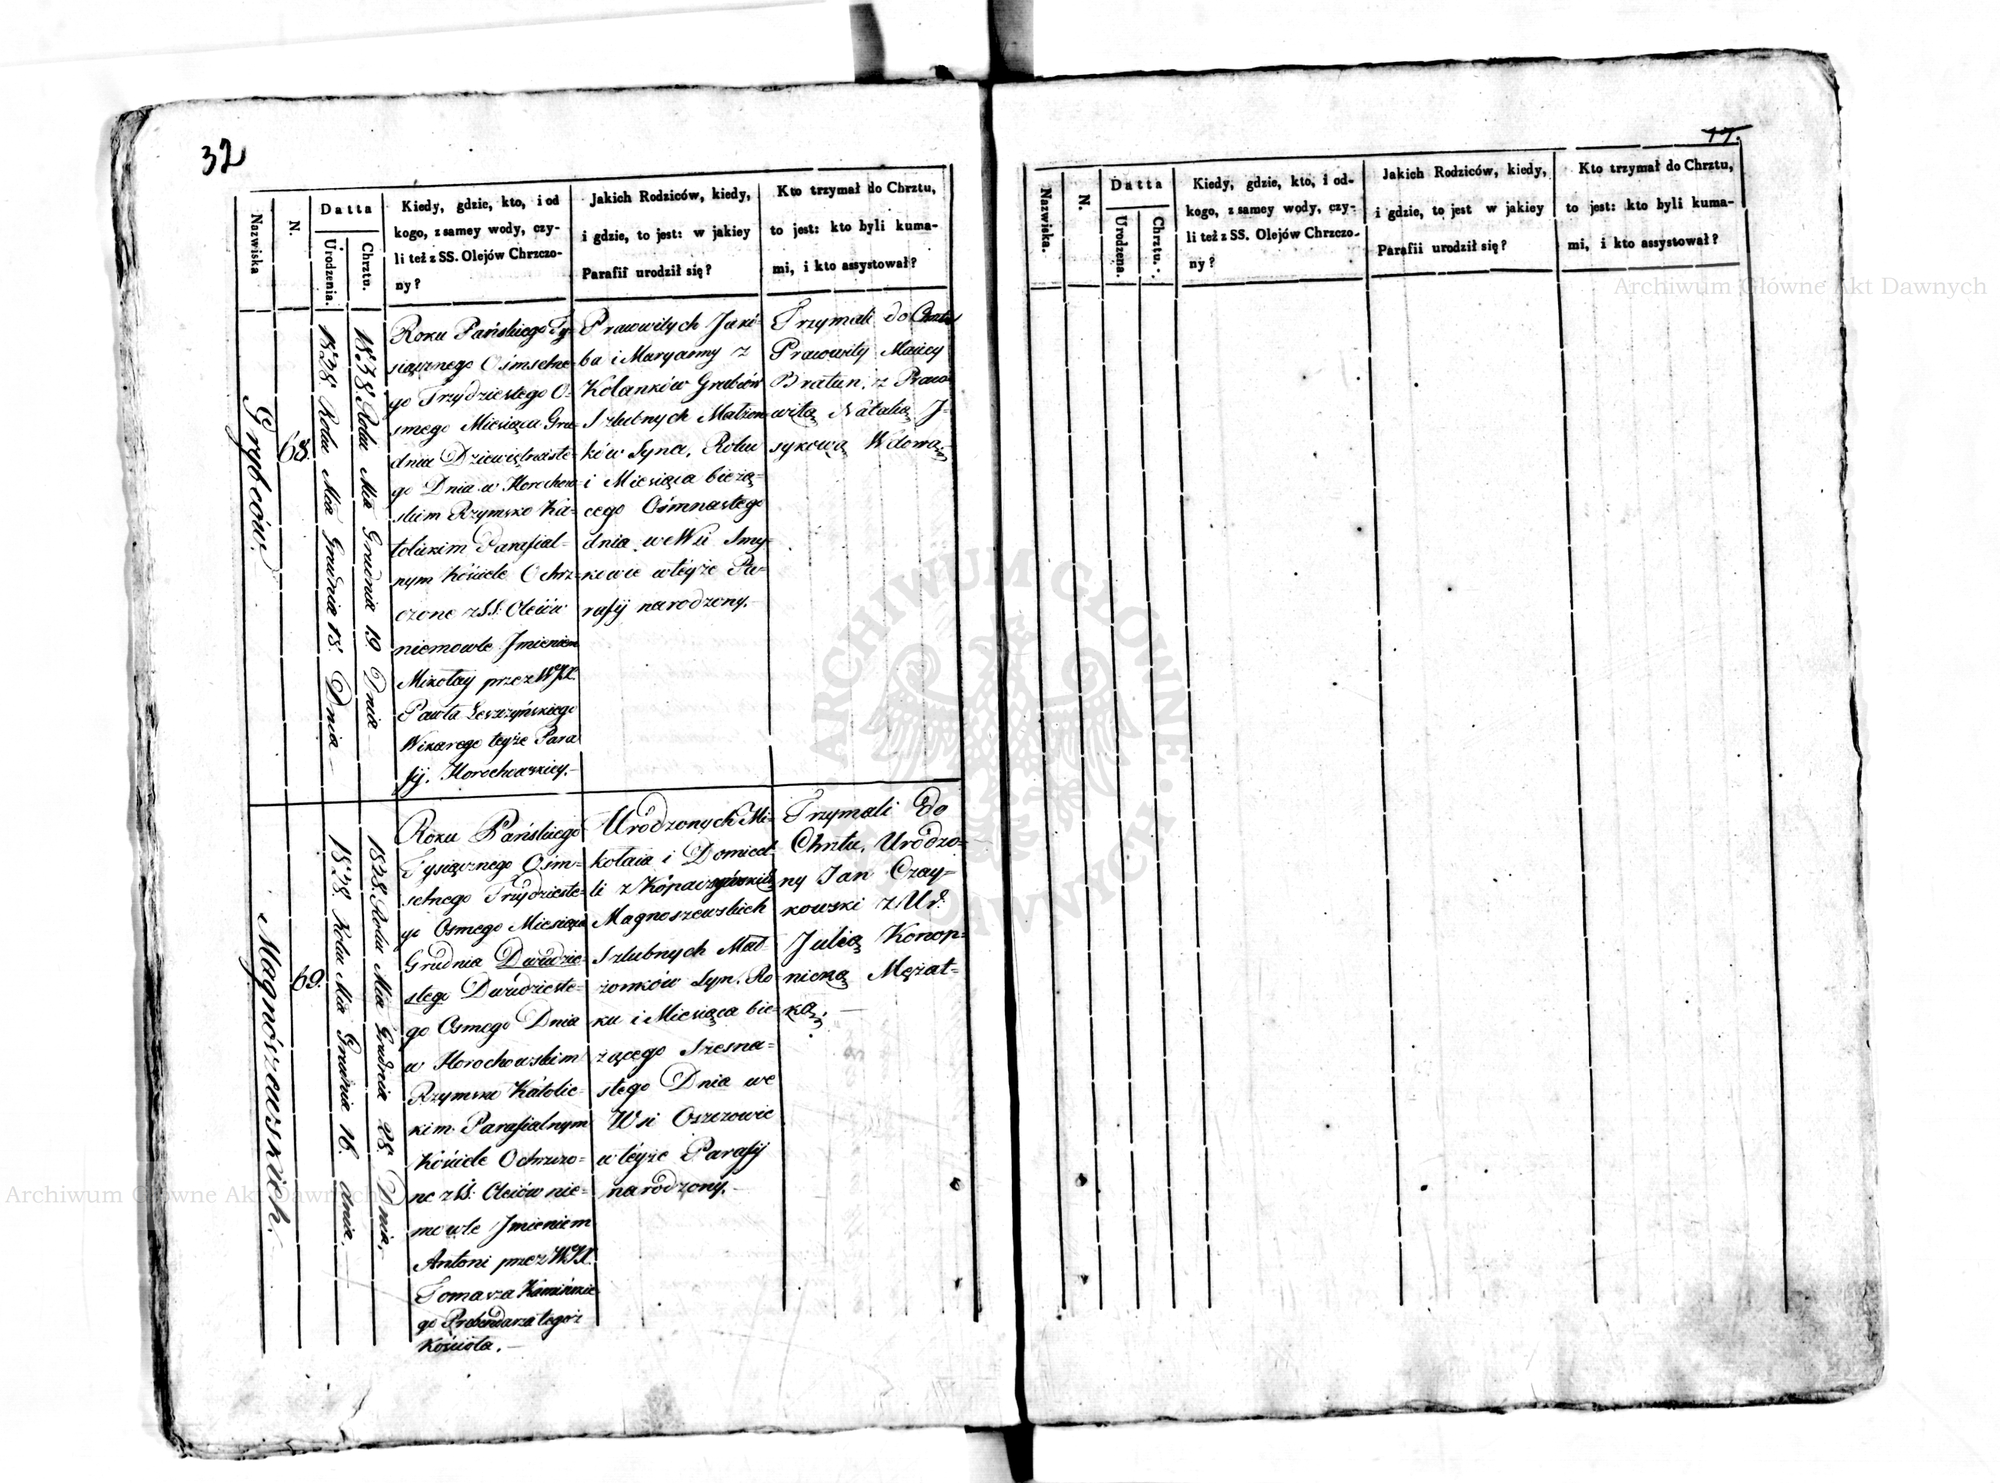 32
Nazwiska
N.
Datta
Urodzenia.
Chrztu.
Kiedy, gdzie, kto, i od
kogo, z samey wody, czy-
li też z SS. Olejów Chrzczo-
ny?
Jakich Rodziców, kiedy,
i gdzie, to jest: w jakiey
Parafii urodził się?
Kto trzymał do Chrztu,
to jest: kto byli kuma-
mi, i kto assystował?
68.
1838. Roku Mca Grudnia 18. Dnia
1838. Roku Mca Grudnia 19 Dnia
Roku Pańskiego Ty-
siącznego Ośmsetne-
go Trzydziestego O-
smego Miesiąca Gru-
dnia Dziewiętnaste-
go Dnia w Horochow-
skim Rzymsko Ka-
tolickim Parafial-
nym Kościele Ochrz-
czone z SS. Olejów
niemowle Imieniem
Mikołay przez WJX.
Pawła Leszczyńskiego
Wikarego teyże Para
fij. Horochowskiey.
Prawowitych Jakó-
ba i Maryanny z
Kolanków Grabców
Szlubnych Małżon
ków Syna, Roku
i Miesiąca bieżą-
cego Ośmnastego
dnia we Wsi Smy-
kowie w teyże Pa-
rafij narodzony.
Trzymali do Chrztu
Prawowity Maciey
Bratun, z Prawo
witą Natalią J-
sykową Wdową
Magnoszewskich.
69.
1838. Roku Mca Grudnia 16. dnia.
1838. Roku Mca Grudnia 28. Dnia.
Roku Pańskiego
Tysiącznego Ośm-
setnego Trzydzieste-
go Osmego Miesiąca
Grudnia Dwudzie-
stego Dwudzieste-
go Osmego Dnia
w Horochowskim
Rzymsko Katolic-
kim Parafialnym
Kościele Ochrzczo-
ne z SS. Olejów nie-
mowle Imieniem
Antoni przez WJX.
Tomasza Kamińskie
go Prebendarza tegoż
Kościoła.
Urodzonych Mi-
kołaia i Domicel-
li z
Magnoszewskich
Szlubnych Mał-
żonków Syn, Ro-
ku i Miesiąca bie-
żącego Szesna-
stego Dnia we
Wsi Oszczowie
w teyże Parafij
narodzony.
Trzymali do
Chrztu, Urodzo-
ny Jan Czay-
kowski z Ur.
Julią Konop-
nicką Mężat-
ką.
17.
Nazwiska.
N.
Datta
Urodzena.
Chrztu.
Kiedy, gdzie, kto, i od-
kogo, z samey wody, czy-
li też z SS. Olejów Chrzczo-
ny?
Jakich Rodziców, kiedy,
i gdzie, to jest w jakiey
Parafii urodził się?
Kto trzymał do Chrztu,
to jest: kto byli kuma-
mi, i kto assystował?
Archiwum Główne Akt Dawnych
Archiwum Główne Akt Dawnych
ARCHIWUM GŁÓWNE AKT DAWNYCH